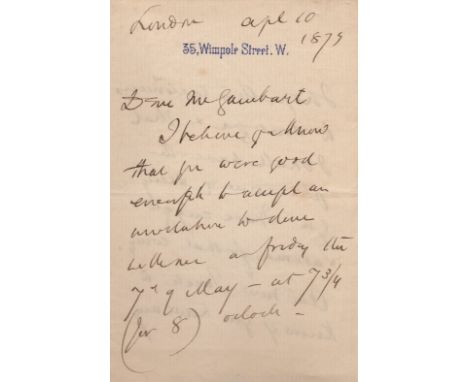 London apl 10
1879
35, Wimpole Street. W.
Dear Mr Gambart
I believe you know
that you were good
enough to accept an
invitation to dine
with me on friday the
7th of May – at 7 3/4
(for 8) oclock –